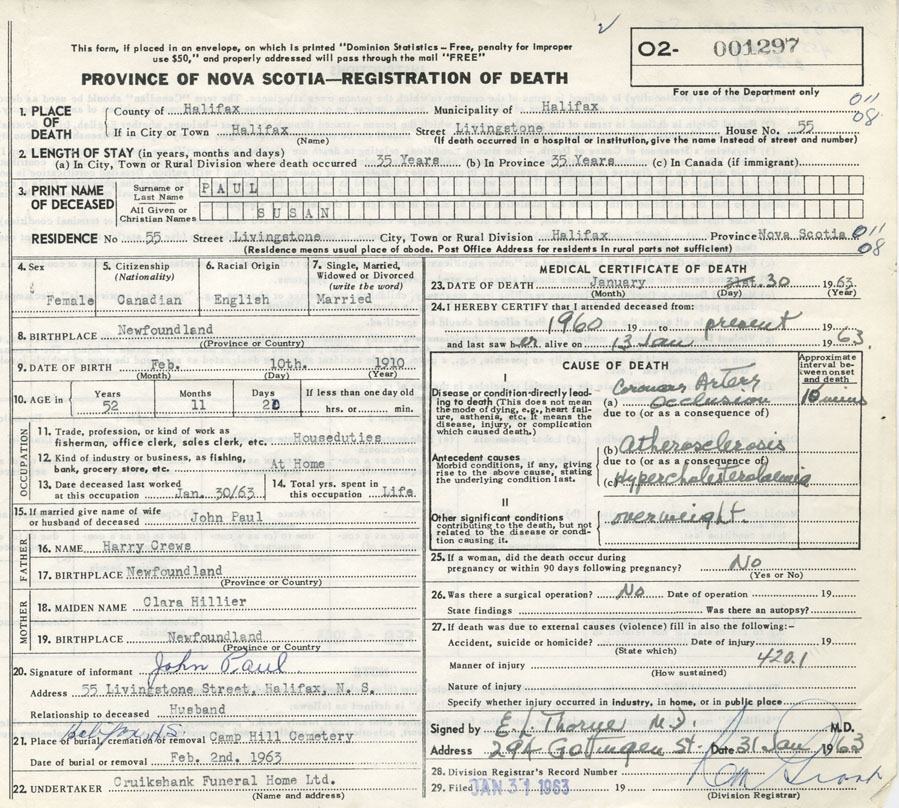 This form, if placed in an envelope, on which is printed "Dominion Statistics – Free, penalty for Improper
use $50," and properly addressed will pass through the mail "FREE"
PROVINCE OF NOVA SCOTIA—REGISTRATION OF DEATH
O2- 001297
For use of the Department only
011
08
1. PLACE OF DEATH { County of Halifax Municipality of Halifax
If in City or Town Halifax Street Livingstone House No. 55
(Name) (If death occurred in a hospital or institution, give the name instead of street and number)
2. LENGTH OF STAY (in years, months and days)
(a) In City, Town or Rural Division where death occurred 35 Years (b) In Province 35 Years (c) In Canada (if immigrant)
3. PRINT NAME OF DECEASED { Surname or Last Name PAUL
All Given or Christian Names SUSAN
RESIDENCE No 55 Street Livingstone City, Town or Rural Division Halifax Province Nova Scotia 011
08
(Residence means usual place of abode. Post Office Address for residents in rural parts not sufficient)
4. Sex
Female
5. Citizenship
(Nationality)
Canadian
6. Racial Origin
English
7. Single, Married,
Widowed or Divorced
(write the word)
Married
8. BIRTHPLACE Newfoundland
((Province or Country)
9. DATE OF BIRTH Feb. 10th. 1910
(Month) (Day) (Year)
10. AGE in { Years Months Days If less than one day old
52 11 20 hrs. or min.
OCCUPATION
11. Trade, profession, or kind of work as
fisherman, office clerk, sales clerk, etc. Houseduties
12. Kind of industry or business, as fishing,
bank, grocery store, etc. At Home
13. Date deceased last worked
at this occupation Jan. 30/63
14. Total yrs. spent in
this occupation Life
15. If married give name of wife
or husband of deceased John Paul
FATHER
16. NAME Harry Crews
17. BIRTHPLACE Newfoundland
(Province or Country)
MOTHER
18. MAIDEN NAME Clara Hillier
19. BIRTHPLACE Newfoundland
(Province or Country)
20. Signature of informant John Paul
Address 55 Livingstone Street, Halifax, N. S.
Relationship to deceased Husband
Halifax, N.S.
21. Place of burial, cremation or removal Camp Hill Cemetery
Date of burial or removal Feb. 2nd. 1963
22. UNDERTAKER Cruikshank Funeral Home Ltd.
(Name and address)
MEDICAL CERTIFICATE OF DEATH
23. DATE OF DEATH January 31st. 30 1963
(Month) (Day) (Year)
24. I HEREBY CERTIFY that I attended deceased from:
1960 19 to present 19
and last saw her alive on 13 Jan 1963.
CAUSE OF DEATH
Approximate
interval be-
tween onset
and death
I
Disease or condition-directly lead-
ing to death (This does not mean
the mode of dying, e.g., heart fail-
ure, asthenia, etc. It means the
disease, injury, or complication
which caused death.)
(a) Coronary Artery
Occlusion 10 mins
due to (or as a consequence of)
Antecedent causes
Morbid conditions, if any, giving
rise to the above cause, stating
the underlying condition last.
(b) Atherosclerosis
due to (or as a consequence of)
(c) Hypercholesterolaemia
II
Other significant conditions
contributing to the death, but not
related to the disease or condi-
tion causing it.
overweight.
25. If a woman, did the death occur during
pregnancy or within 90 days following pregnancy? No
(Yes or No)
26. Was there a surgical operation? No Date of operation 19
State findings Was there an autopsy?
27. If death was due to external causes (violence) fill in also the following:–
Accident, suicide or homicide? Date of injury 19
(State which)
Manner of injury 420.1
(How sustained)
Nature of injury
Specify whether injury occurred in industry, in home, or in public place
Signed by E L Thorne M.D. M.D.
Address 29A Gottingen St. Date 31 Jan 1963
28. Division Registrar's Record Number
29. Filed JAN 31 1963 19
(Division Registrar)